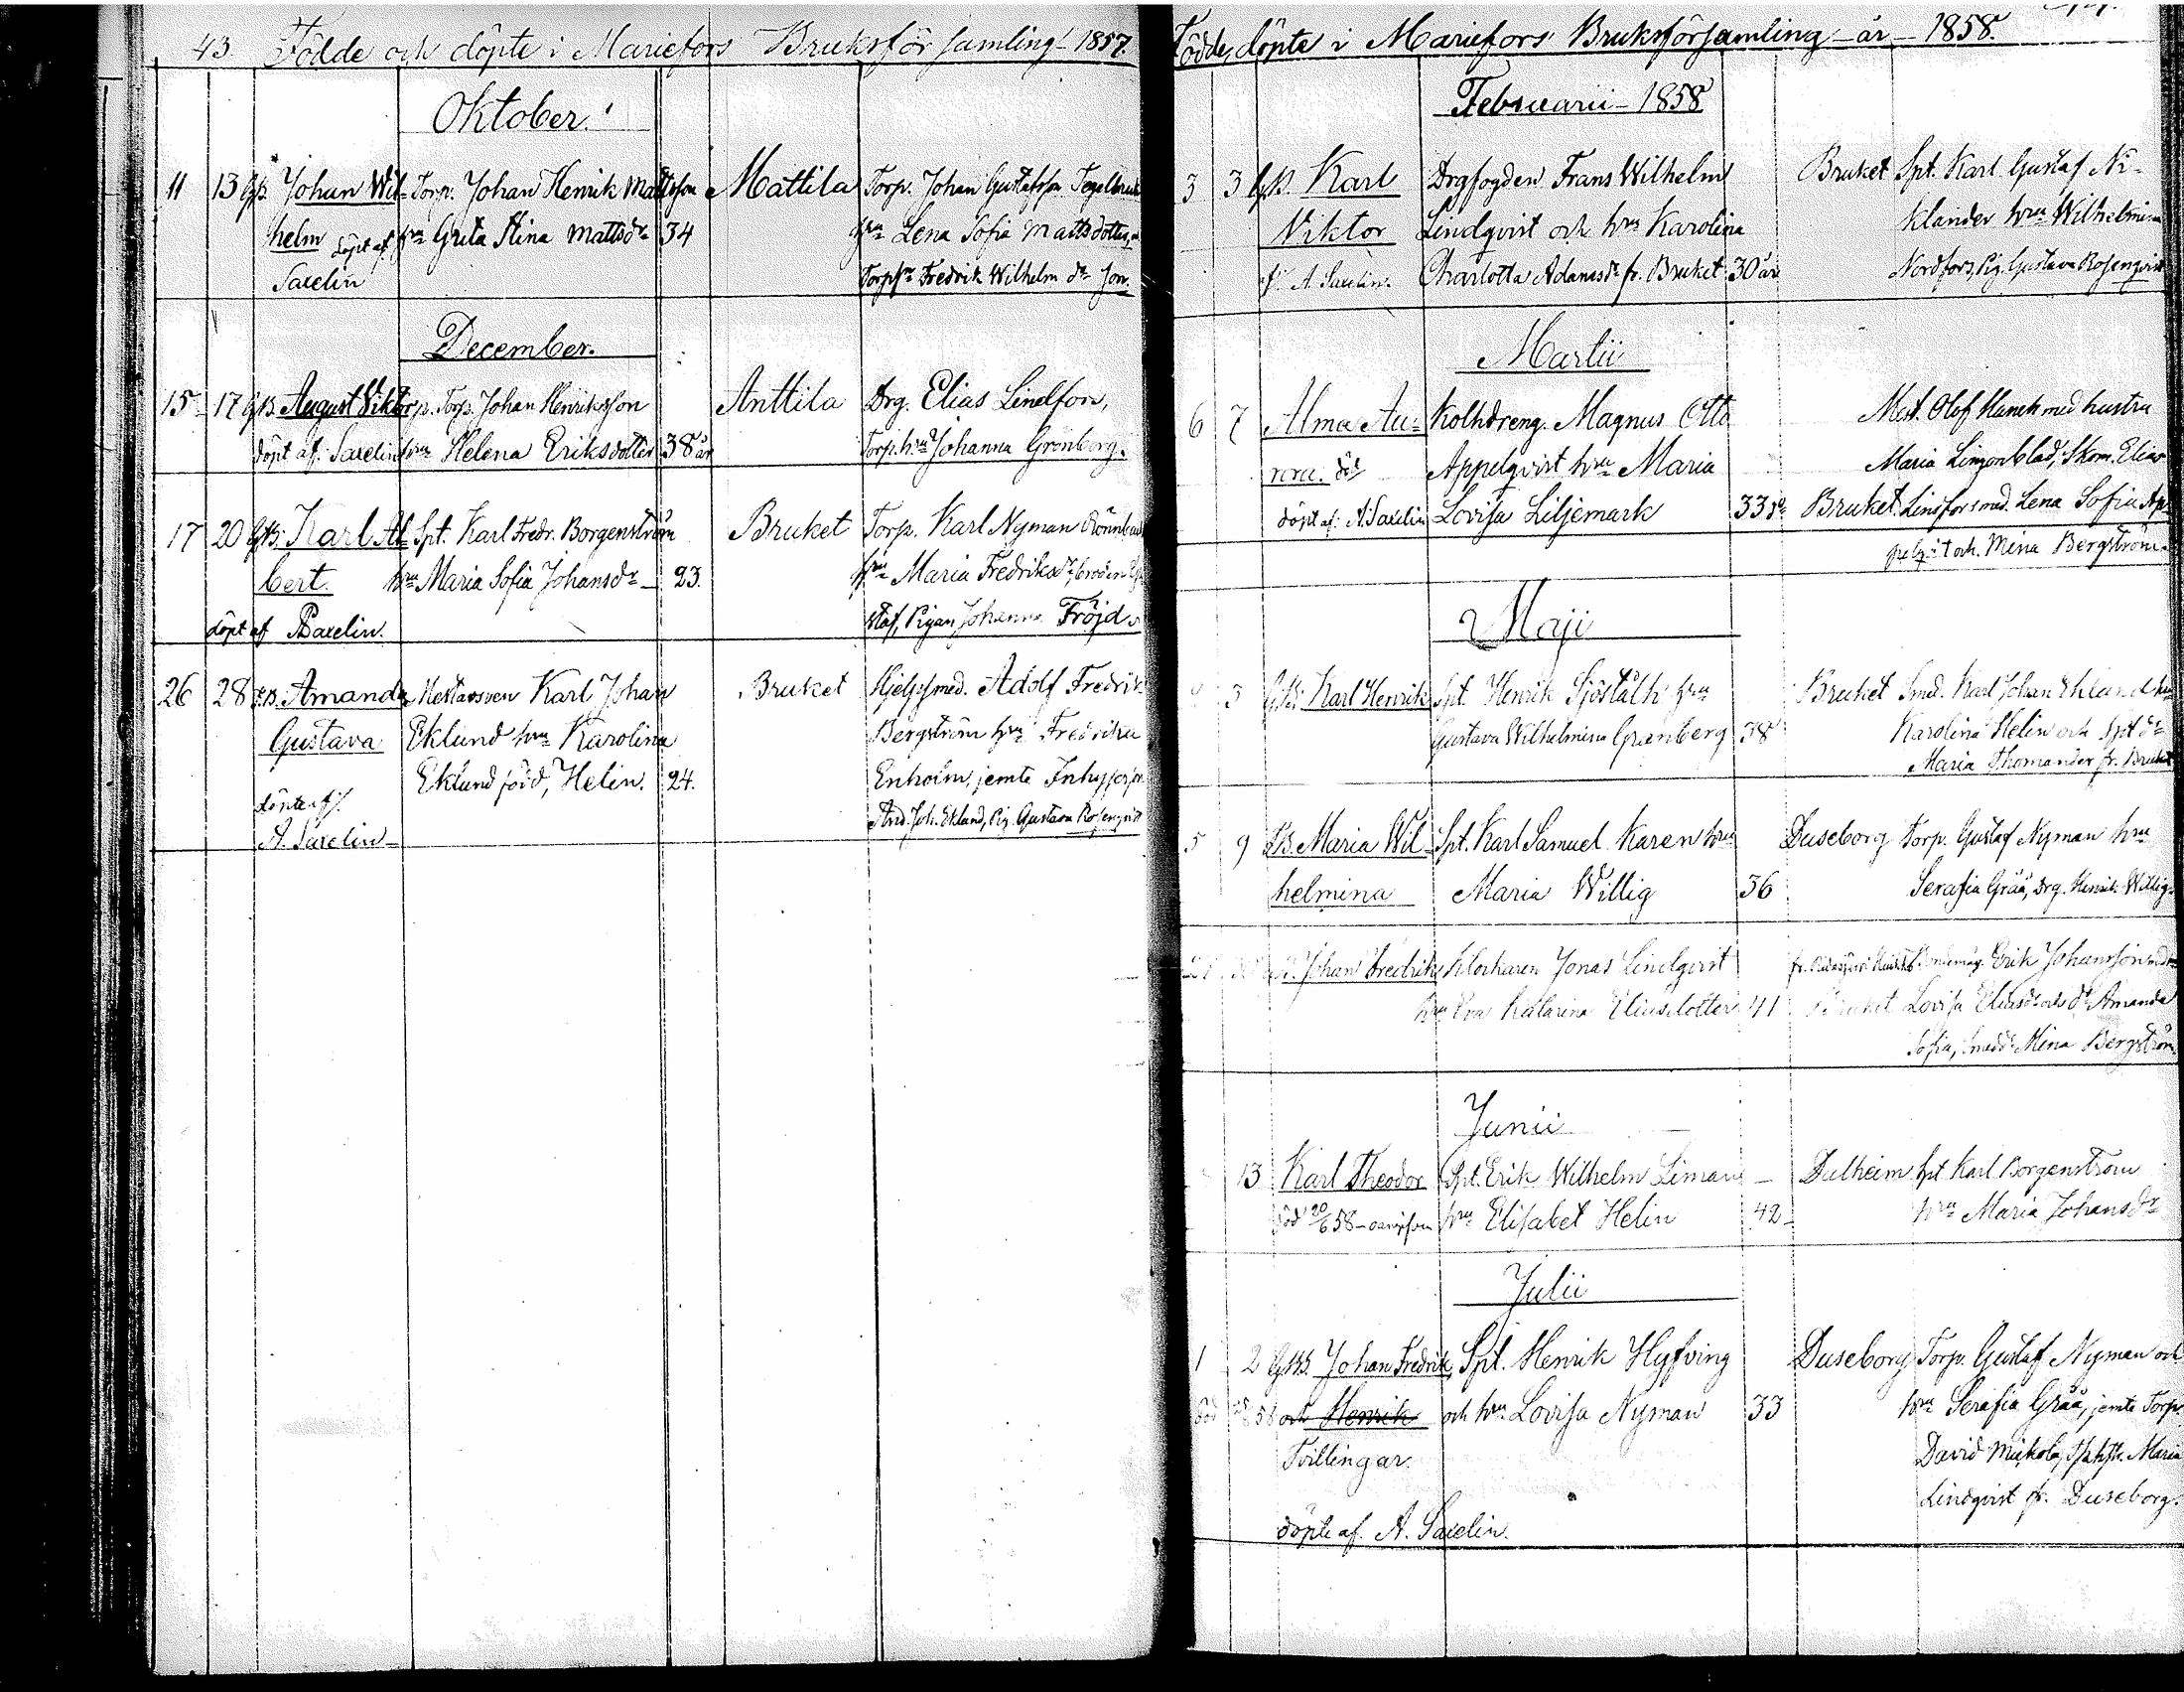 43. Födde och döpte i Mariefors Bruksförsamling - 1857.
Oktober.
11 13 GB. Johan Wil- Torp. Johan Henrik Mattsson Mattila Torp. Johan Gustafsson Tegelbruk
helm döpt af hru Greta Stina Mattsdr 34 hru Lena Sofia Mattsdotter,
Saxelin Fredrik Wilhelm dr Jon.
December.
15 17 GB. August Viktor Torp. Johan Henriksson Anttila Drg. Elias Lindfors,
döpt af Saxelin hru Helena Eriksdotter 38 år Torp. hru Johanna Grönberg.
17 20 GB. Karl Al- Spt. Karl Fredr. Borgenström Bruket Torp. Karl Nyman
bert. hru Maria Sofia Johansdr 23. hru Maria Fredriksdr,
döpt af Saxelin. staf, Pigan Johanna Fröjd
26 28 Amanda Karl Johan Bruket Hjelpsmed. Adolf Fredrik
Gustava Eklund hru Karolina Bergström hru Fredrika
Eklund född, Helin. 24. Enholm, jemte
A. Saxelin And. Joh. Eklund, Pig. Gustava Rosenqvist
Födde, döpte i Mariefors Bruksförsamling år 1858.
Februarii - 1858
3 3 GB. Karl Drgfogden Frans Wilhelm Bruket Spt. Karl Gustaf Ni-
Viktor Lindqvist och hru Karolina klander hru Wilhelmina
A. Saxelin. Charlotta Adamsdr fr. Bruket 30 år Nordfors, Pig. Gustava Rosenqvist
Martii
6 7 Alma Au- Kolhdreng. Magnus Otto Mest. Olof med hustru
rora. Appelqvist hru Maria Maria Lingonblad, Skom. Elias
döpt af: A. Saxelin Lovisa Liljemark 33 Bruket Linsfors med. Lena Sofia Ap-
pelqvist och Mina Bergström
Maji
3 GB. Karl Henrik Spt. Henrik Sjöstålh hru Bruket Smd. Karl Johan Eklund hru
Gustava Wilhelmina Grenberg 38 Karolina Helin och Spt dr
Maria Thomander fr. Bruket
5 9 Maria Wil- Spt. Karl Samuel Karen hru Duseborg Torp. Gustaf Nyman hru
helmina Maria Willig 36 Serafia Gråå, Drg. Henrik Willig.
Johan Fredrik Klockaren Jonas Lindqvist Erik Johansson
hru Eva Katarina Eliasdotter 41 Bruket Lovisa Eliasdr och dr Amanda
Sofia, Smeddr Mina Bergström
Junii
13 Karl Theodor Spt. Erik Wilhelm Liman Dalheim Spt Karl Borgenström
död 20/6 58 hru Elisabet Helin 42 hru Maria Johansdr
Julii
1 2 Johan Fredrik, Spt. Henrik Hyfving Duseborg Torp. Gustaf Nyman och
död och Henrik och hru Lovisa Nyman 33 hru Serafia Gråå, jemte Torp.
Tvillingar. David Maria
Lindqvist fr. Duseborg.
döpte af. A. Saxelin.